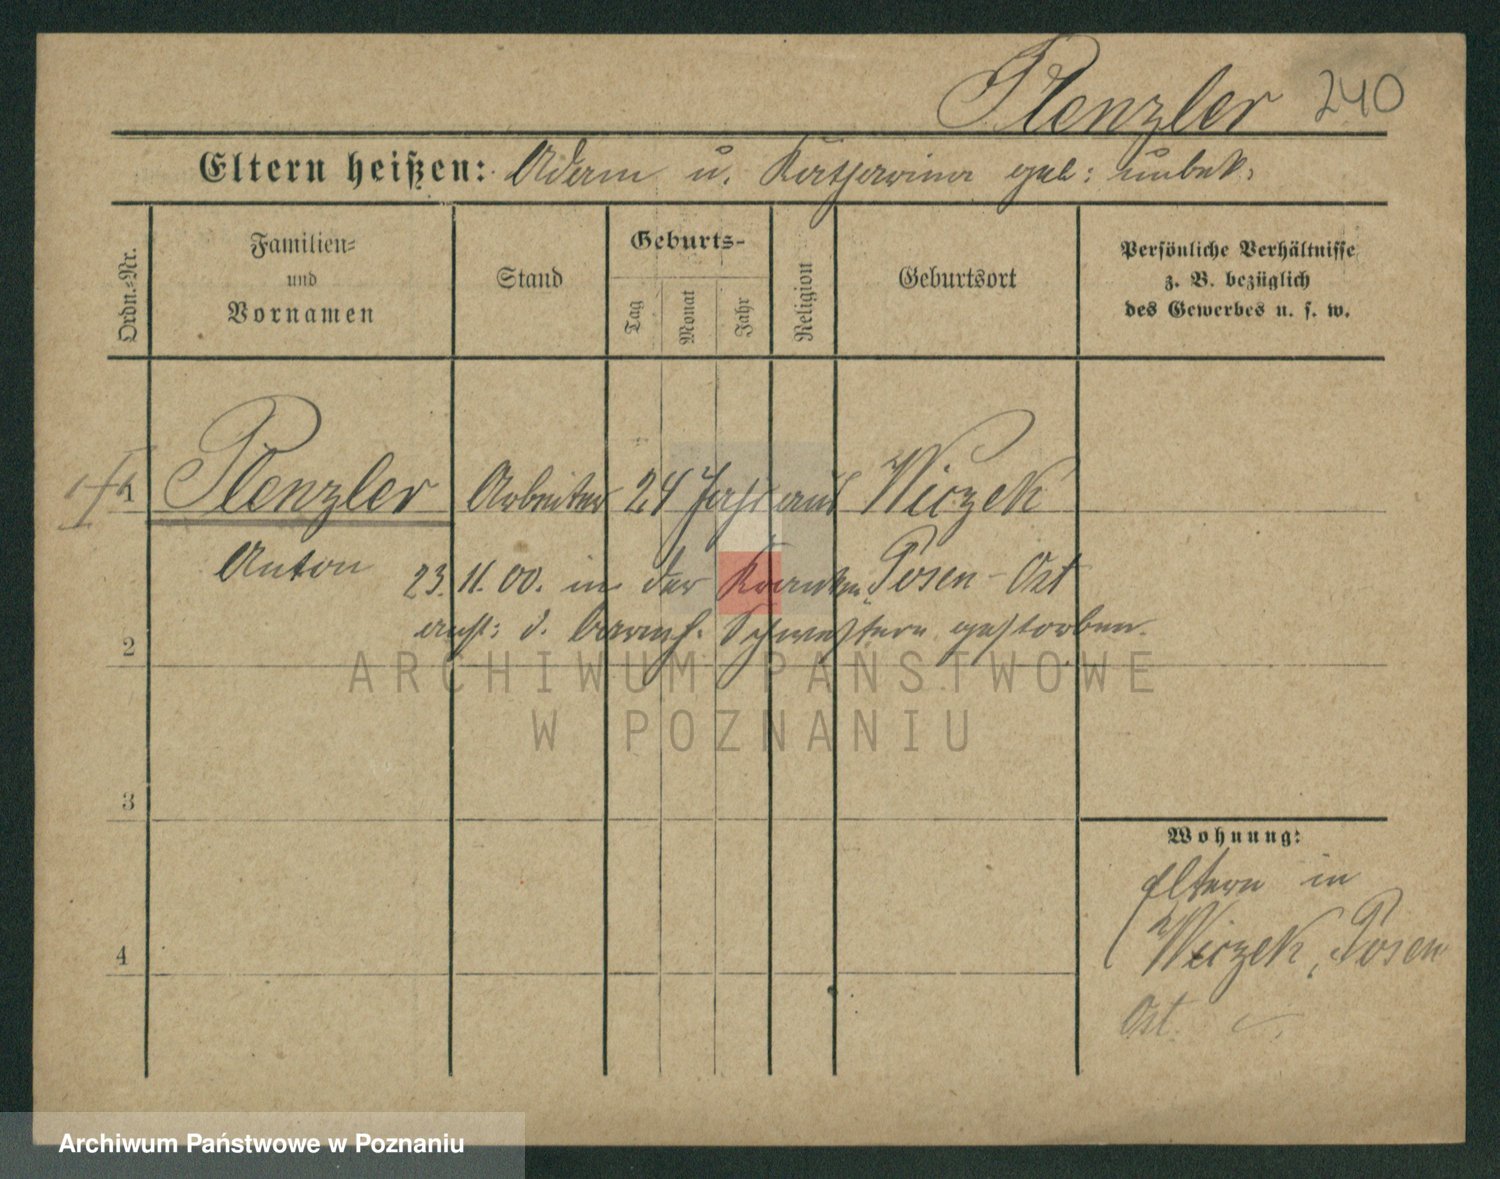 Plenzler 240
Eltern heißen: Adam u. Katharina geb: unbek.
Ordn.-Nr.
Familien-
und
Vornamen
Stand
Geburts-
Tag
Monat
Jahr
Religion
Geburtsort
Persönliche Verhältnisse
z. B. bezüglich
des Gewerbes u. s. w.
1 Plenzler Arbeiter 24 Jahr alt Wiczek
Anton 23.11.00. in der Kranken Posen-Ost
anst: d. barmh. Schwestern gestorben.
2
ARCHIWUM PAŃSTWOWE
W POZNANIU
3
Wohnung:
Eltern in
4 Wiczek, Posen
Ost.
Archiwum Państwowe w Poznaniu